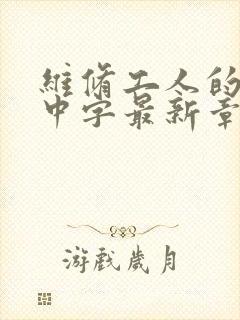 維脩工人的
中字最新章
游戲歲月